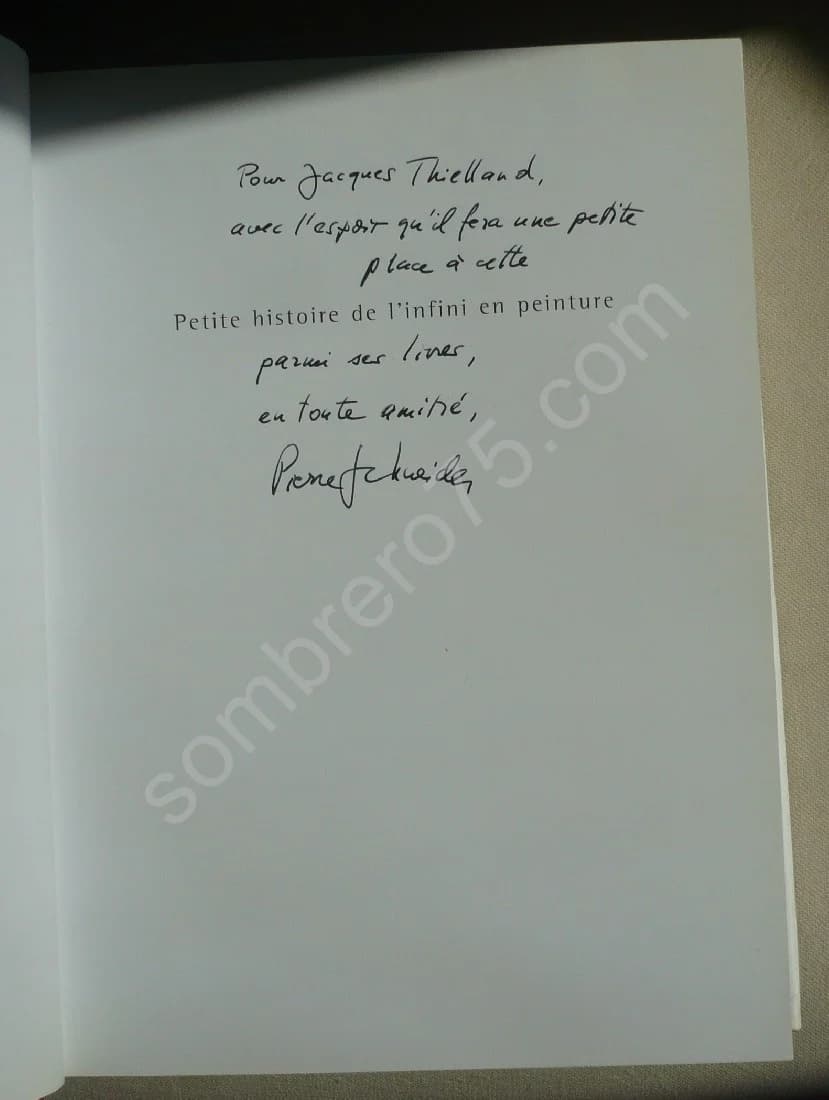 Pour Jacques Thielland,
avec l'espoir qu'il fera une petite
place à cette
Petite histoire de l'infini en peinture
parmi ses livres,
en toute amitié,
Pierre Schneider
sombrero75.com